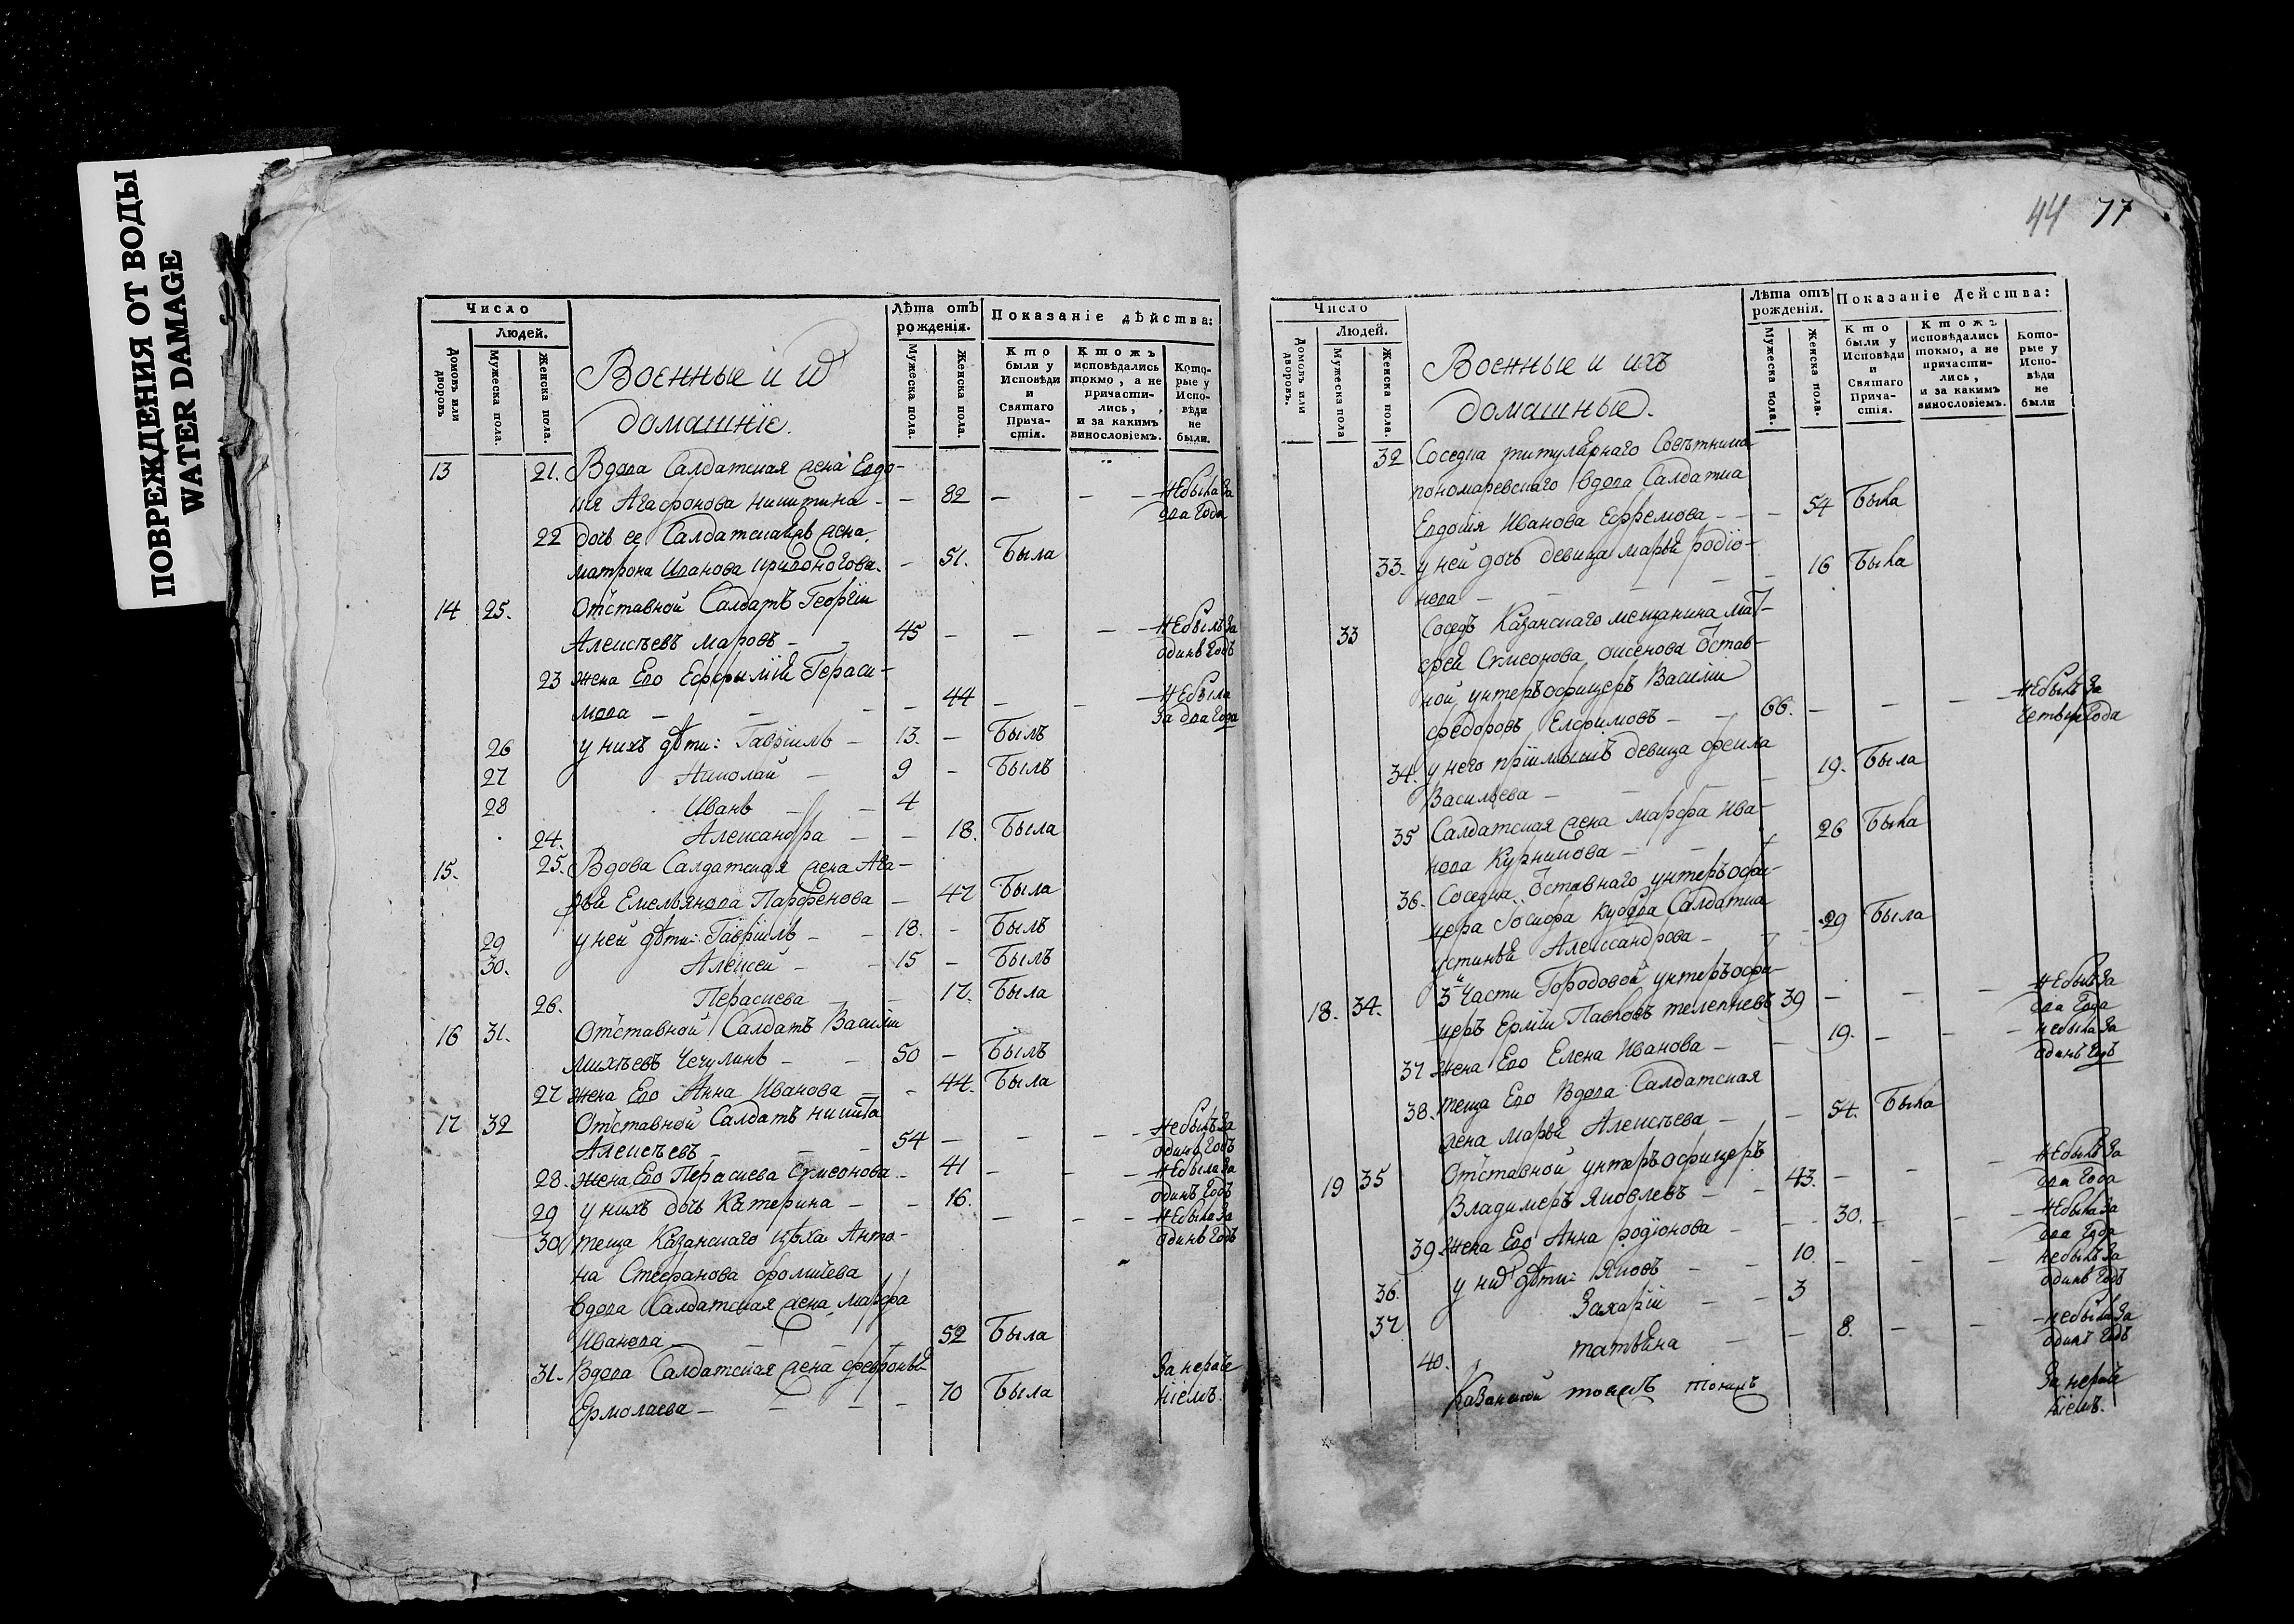 ПОВРЕЖДЕНИЯ ОТ ВОДЫ
WATER DAMAGE
Число
Людей.
Домовъ или дворовъ
Мужеска пола.
Женска пола.
Военные и ихъ
домашніе.
Лѣта отъ рожденія.
Мужеска пола.
Женска пола.
Показаніе дѣйства:
Кто были у Исповѣди и Святаго Причастія.
Ктожъ исповѣдались токмо, а не причастились, и за какимъ винословіемъ.
Которые у Исповѣди не были.
13 21. Вдова Салдатская жена Евдо-
кія Агафонова Никитина - - 82 - - - Небыла за
два года
22 дочь ее Салдатская жена
Матрона Иванова Кривоногова. - 51. Была
14 25. Отставной Салдатъ Георгій
Алексѣевъ Маровъ - - 45 - - - Небылъ за
одинъ годъ
23 жена Ево Ефимія Гераси-
мова - - - 44 - - - Небыла
за два года
26 у нихъ дѣти: Гавріилъ - 13. - Былъ
27 Николай - 9 - Былъ
28 Иванъ - - 4
24. Александра - - 18. Была
15. 25. Вдова Салдатская жена
Емельянова Парфенова - 47 Была
29 у ней дѣти: Гавріилъ - - 18. - Былъ
30. Алексей - - 15 - Былъ
26. Перасиева - - 17. Была
16 31. Отставной Салдатъ Василій
Михѣевъ Чечулинъ - - 50 - Былъ
27 жена Ево Анна Иванова - - 44. Была
17 32 Отставной Салдатъ Никита
Алексѣевъ - - - 54 - - - Небылъ за
одинъ годъ
28. жена Ево Перасиева Симеонова - 41 - - - Небыла за
одинъ годъ
29 у нихъ дочь Катерина - - 16. - - - Небыла за
одинъ годъ
30 теща Казанскаго цѣха Анто-
на Стефанова
вдова Салдатская жена Марфа
Иванова - - - 52 Была
31. Вдова Салдатская жена Февронья
Ермолаева - - - - 70 Была
За нераче
ніемъ.
44 77
Число
Людей.
Домовъ или дворовъ.
Мужеска пола
Женска пола.
Военные и ихъ
домашные.
Лѣта отъ рожденія.
Мужеска пола.
Женска пола.
Показаніе Действа:
Кто были у Исповѣди и Святаго Причастія.
Ктожъ исповѣдались токмо, а не причастились, и за какимъ винословіемъ.
Которые у Исповѣди не были
32 Соседка титулярнаго Советника
Пономаревскаго вдова Салдатка
Евдокія Иванова Ефремова - - - 54 Была
33. у ней дочь девица Марья Родіо-
нова - - - - 16 Была
33 Соседъ Казанскаго мещанина Мат-
фея Симеонова отстав-
ной унтеръофицеръ Василій
Федоровъ Евфимовъ - - 66. - - - Небылъ за
четыри года
34. у него девица Фекла
Васильева - - - 19. Была
35 Салдатская жена Марфа Ива-
нова Курникова - - 26 Была
36. Соседка отставнаго унтеръофи-
цера Іосифа Салдатка
Устинья Александрова - - 29 Была
18. 34. 3й Части Городовой унтеръофи-
церъ Павловъ Телепневъ 39 - - - Небылъ за
два года
37 жена Ево Елена Иванова - - 19. - - - небыла за
одинъ годъ
38. теща Ево Вдова Салдатская
жена Марья Алексѣева - - 54. Была
19 35 Отставной унтеръофицеръ
Владимеръ Яковлевъ - - 43. - - - Небылъ за
два года
39 жена Ево Анна Родіонова - - 30. - - - Небыла за
два года
36. у них дѣти: Яковъ - - 10. - - - небылъ за
одинъ годъ
37 Захарій - - 3
40. Татьяна - - 8. - - - небыла за
одинъ годъ
За нераче
ніемъ.